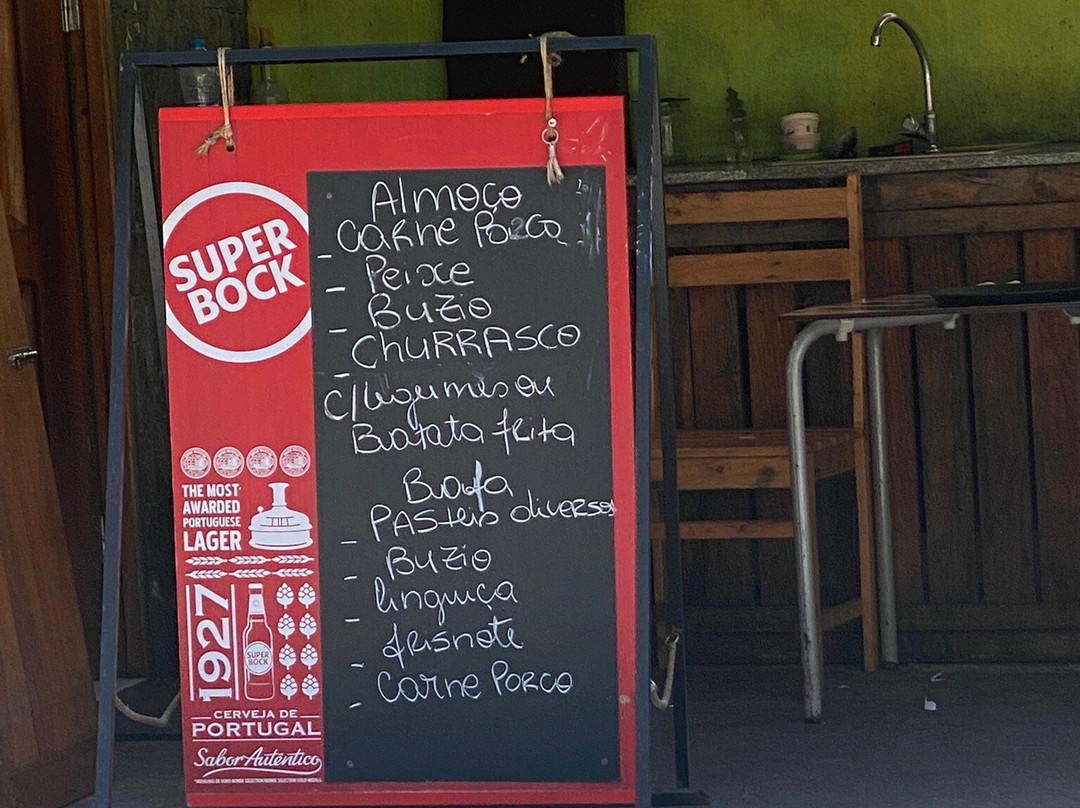 SUPER
BOCK
Almoço
- Carne Porco
- Peixe
- Buzio
- Churrasco
c/legumes ou
Batata frita
Bafa
- Pasteis diversos
- Buzio
- linguiça
- frisnote
- Carne Porco
THE MOST
AWARDED
PORTUGUESE
LAGER
1927
SUPER
BOCK
CERVEJA DE
PORTUGAL
Sabor Autêntico